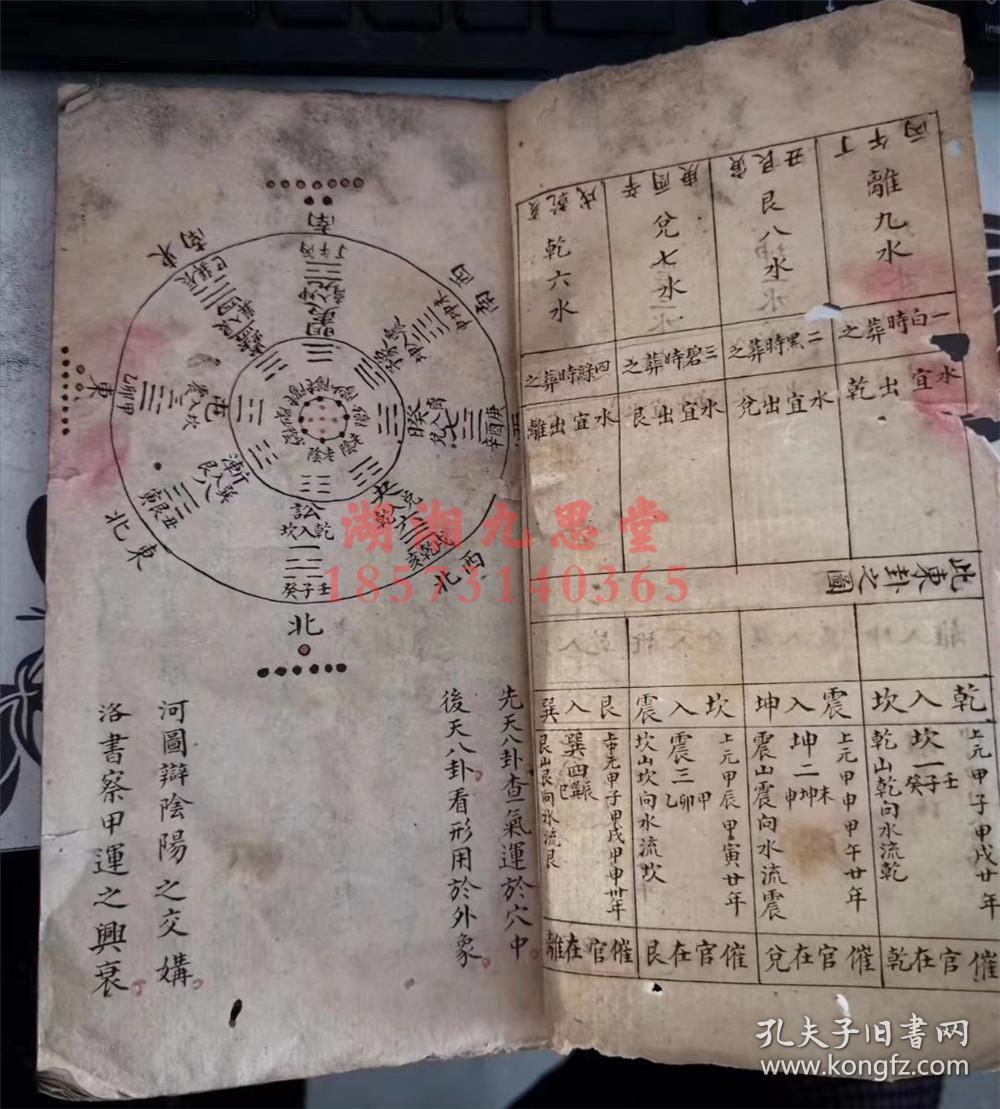 丙午丁
離九水
一白時葬之
水宜出乾
丑艮寅
艮八水
二黑時葬之
水宜出兌
庚酉辛
兌七水
三碧時葬之
水宜出艮
戌乾亥
乾六水
四綠時葬之
水宜出離
此東卦之圖
乾入坎
上元甲子甲戌廿年
坎一
壬子癸
乾山乾向水流乾
催官在乾
震入坤
上元甲申甲午廿年
坤二
未坤申
震山震向水流震
催官在兌
坎入震
上元甲辰甲寅廿年
震三
甲卯乙
坎山坎向水流坎
催官在艮
艮入巽
中元甲子甲戌甲申卅年
巽四
艮山艮向水流艮
催官在離
南
東南
西南
東
東北
北
西北
丁午丙
乙卯甲
丑艮寅
壬子癸
戌乾亥
庚酉辛
屯
漸
巽入艮八
訟
乾入坎
睽
夬
兌入乾六
老陰
先天八卦查氣運於穴中
後天八卦看形用於外象
河圖辯陰陽之交媾
洛書察甲運之興衰
湖湘九思堂
18573140365
孔夫子旧书网
www.kongfz.com